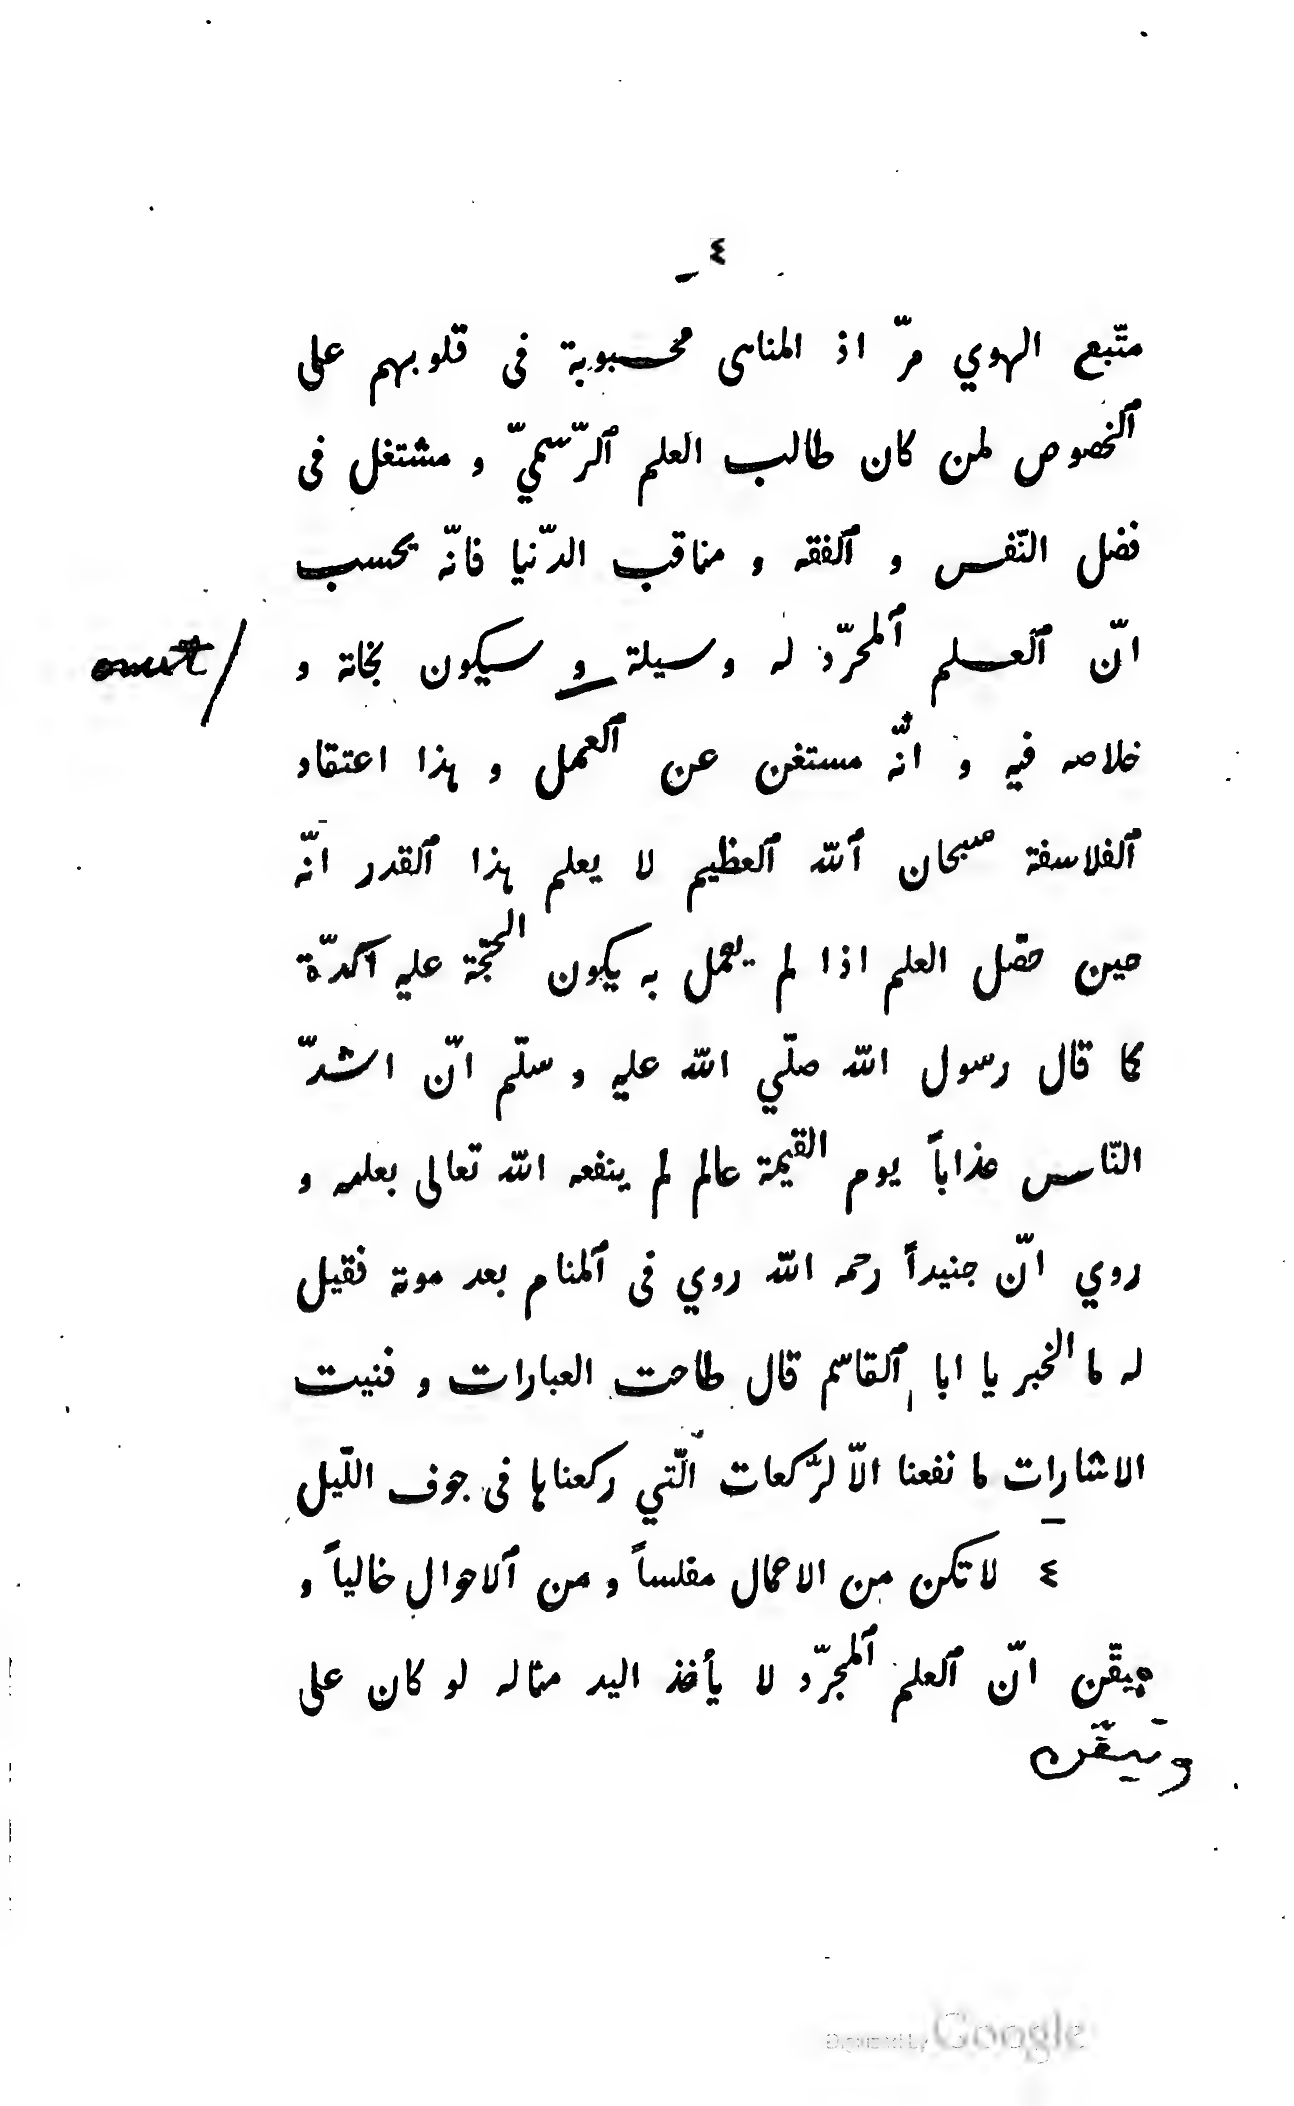 ٤
متّبع الهوي مرّ اذ المناهى محسبوبة فى قلوبهم على
ٱلخصوص لمن كان طالب العلم ٱلرّسميّ و مشتغل فى
فضل النّفس و ٱلفقه و مناقب الدّنيا فانّه يحسب
انّ ٱلعلم ٱلمجرّد له وسيلة و سيكون نجاته و
omit /
خلاصه فيه و انّه مستغن عن ٱلعمل و هذا اعتقاد
ٱلفلاسفة سبحان ٱللّه ٱلعظيم لا يعلم هذا ٱلقدر انّه
حين حصّل العلم اذا لم يعمل به يكون الحجّة عليه آكدّة
كما قال رسول اللّه صلّي اللّه عليه و سلّم انّ اشدّ
النّاس عذاباً يوم القيمة عالم لم ينفعه اللّه تعالى بعلمه و
روي انّ جنيداً رحمه اللّه روي فى ٱلمنام بعد موته فقيل
له ما الخبر يا ابا ٱلقاسم قال طاحت العبارات و فنيت
الاشارات ما نفعنا الاّ لرّكعات الّتي ركعناها فى جوف اللّيل
٤ لا تكن من الاعمال مفلساً و من ٱلاحوال خالياً و
ميقّن انّ ٱلعلم ٱلمجرّد لا يأخذ اليد مثاله لو كان على
وتيقّن
Digitized by Google